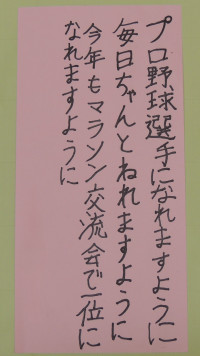 プロ野球選手になれますように
毎日ちゃんとねれますように
今年もマラソン交流会で一位に
なれますように